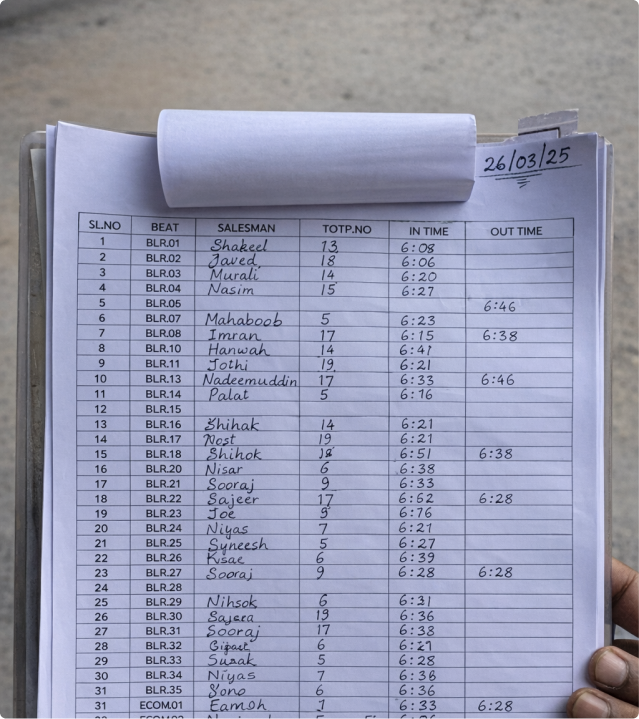 26/03/25
SL.NO BEAT SALESMAN TOTP.NO IN TIME OUT TIME
1 BLR.01 Shakeel 13 6:08
2 BLR.02 Javed 18 6:06
3 BLR.03 Murali 14 6:20
4 BLR.04 Nasim 15 6:27
5 BLR.05 6:46
6 BLR.07 Mahaboob 5 6:23
7 BLR.08 Imran 17 6:15 6:38
8 BLR.10 Hanwah 14 6:41
9 BLR.11 Jothi 19 6:21
10 BLR.13 Nadeemuddin 17 6:33 6:46
11 BLR.14 Palat 5 6:76
12 BLR.15
13 BLR.16 Shihak 14 6:21
14 BLR.17 Nost 19 6:21
15 BLR.18 Shihok 6:51 6:38
16 BLR.20 Nisar 6 6:38
17 BLR.21 Sooraj 9 6:33
18 BLR.22 Sajeer 17 6:62 6:28
19 BLR.23 Joe 9 6:76
20 BLR.24 Niyas 7 6:21
21 BLR.25 Syneesh 5 6:27
22 BLR.26 6 6:39
23 BLR.27 Sooraj 9 6:28 6:28
24 BLR.28
25 BLR.29 Nihsok 6 6:31
26 BLR.30 Sajera 19 6:36
27 BLR.31 Sooraj 17 6:38
28 BLR.32 6 6:21
29 BLR.33 Susak 5 6:28
30 BLR.34 Niyas 7 6:38
31 BLR.35 6 6:36
31 ECOM.01 Eamoh 1 6:33 6:28